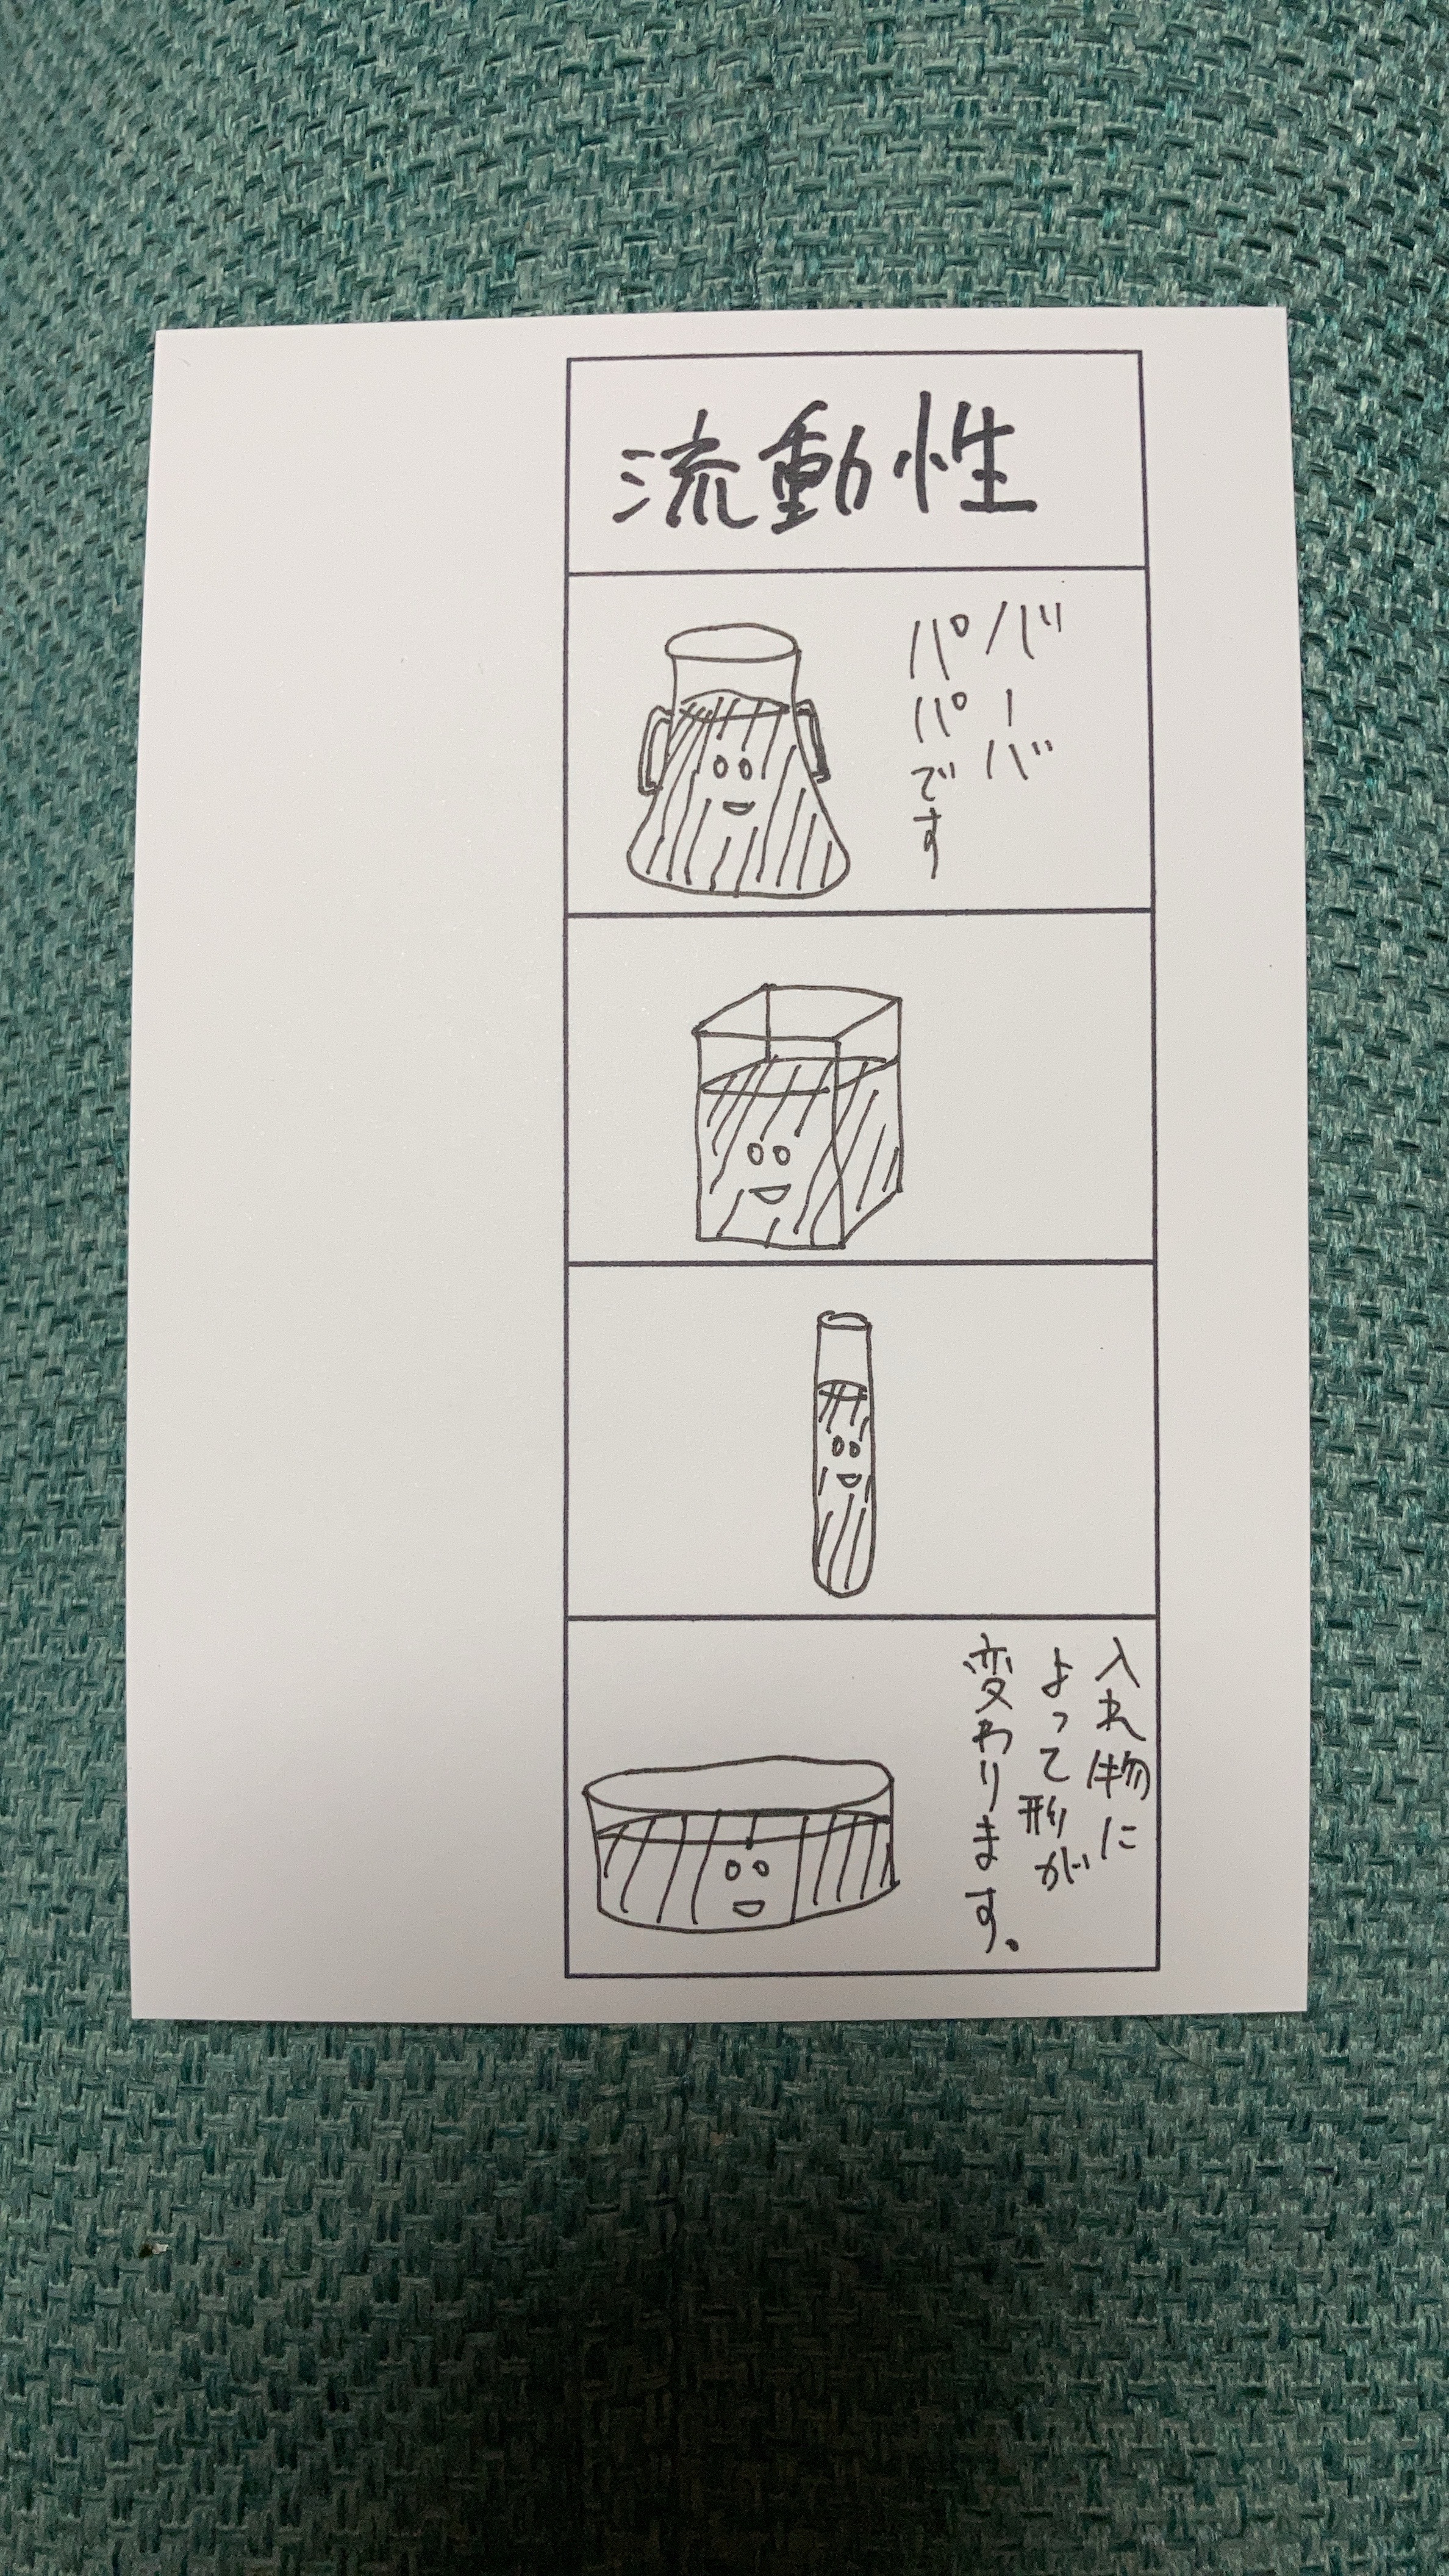 流動性
バーバ
パパです
入れ物に
よって形が
変わります。